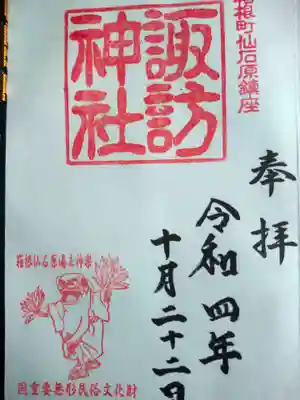 箱根町仙石原鎮座
諏訪神社
奉拝
令和四年
十月二十二日
箱根仙石原湯立神楽
国重要無形民俗文化財